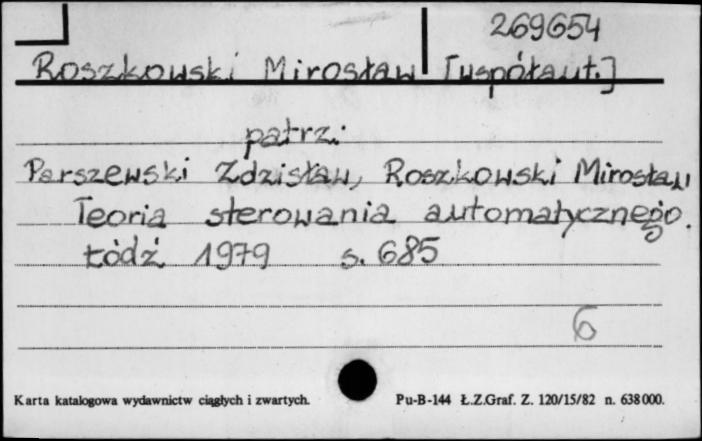 269654
Roszkowski Mirosław [współaut.]
patrz:
Parszewski Zdzisław, Roszkowski Mirosław
Teoria sterowania automatycznego.
Łódź 1979 s. 685
6
Karta katalogowa wydawnictw ciągłych i zwartych. Pu-B-144 Ł.Z.Graf. Z. 120/15/82 n. 638000.